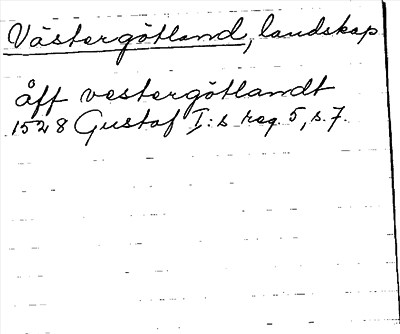 Västergötland, landskap
åff vestergötlandt
1528 Gustaf I:s reg. 5, s. 7.